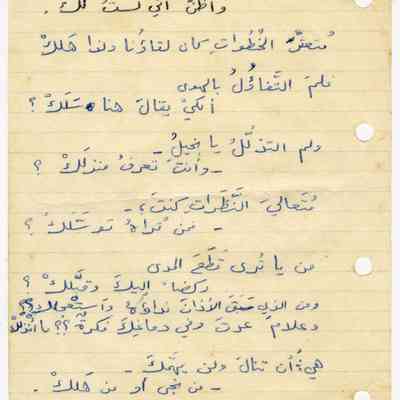 وأظن أني لستُ لك .
متعثر الخُطُوات كان لقاؤنا ولذا هَلكْ
فلمَ التَّفاؤلُ بالهوى
أكيْ يقالَ هنا سَلَكْ ؟
ولم التذلُّلُ يا بخيلُ -
- وأنتَ تعرفُ منذلَكْ ؟
مُتَعاليَ النَّظَراتِ كنتَ ؟ -
- مَن تُراهُ توسَّلَكْ ؟
من يا تُرى قطَعَ المدى
ركضاً اليكَ وقبَّلكْ ؟
ومن الذي سَبَقَ الأذانَ نداؤهُ واستعجلك ؟؟
وعلامَ عدتَ وفي دماغِكَ فكرةٌ ؟؟ ما أنذلكْ
هي : أن تنالَ ولن يهمّكَ -
- من نجى أو من هَلكْ .